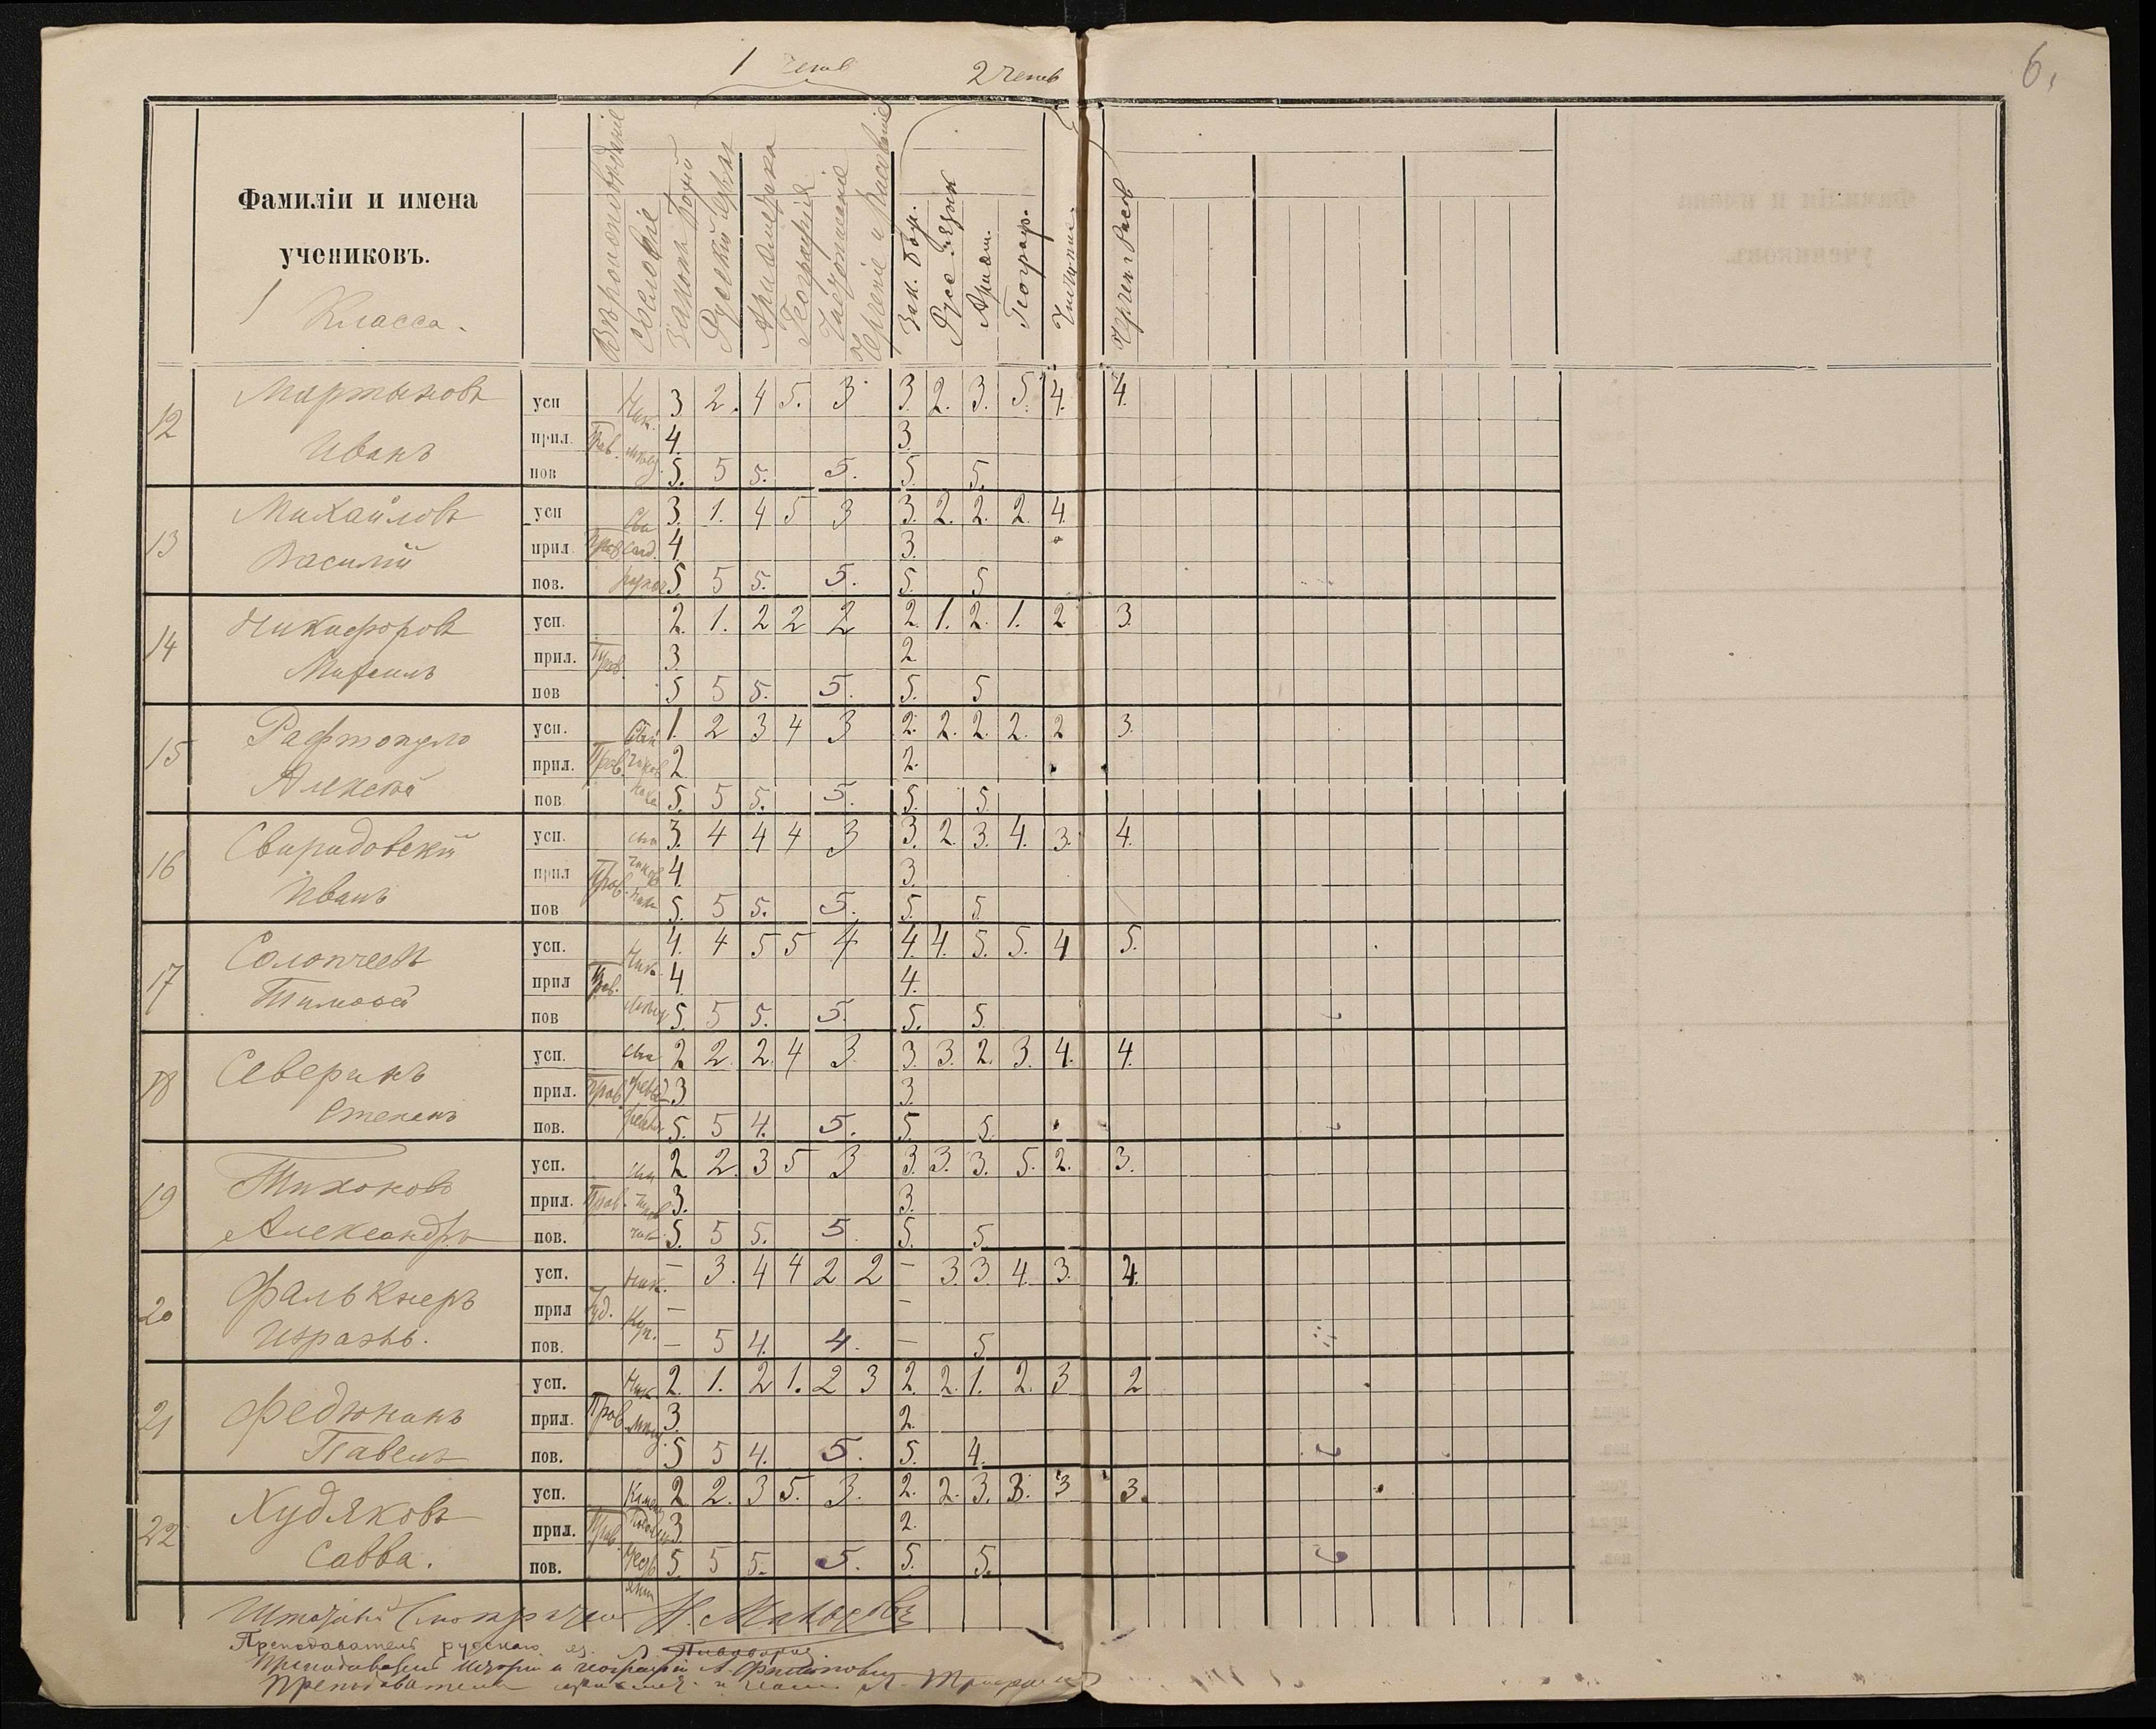 1 четв
2 четв
6.
Фамиліи и имена
учениковъ.
1 Класса.
Вѣроисповѣданіе
Сословіе
Законъ Божій
Русскій языкъ
Ариѳметика
Географія
Чистописаніе
Черченіе и Рисованіе
Зак. Бож.
Русс. языкъ
Ариѳм.
Географ.
Чистопис.
Черчен и Рисов
12 Мартыновъ усп 3 2. 4 5. 3 3. 2. 3. 5. 4. 4.
прил. Прав. 4. 3.
Иванъ пов 5. 5 5. 5. 5. 5.
13 Михайловъ усп 3. 1. 4 5 3 3. 2. 2. 2. 4.
прил. Прав 4. 3.
Василій пов. 5. 5 5. 5. 5. 5
14 Никифоровъ усп. 2. 1. 2 2 2 2. 1. 2. 1. 2. 3.
Михаилъ прил. Прав. 3. 2
пов 5 5 5. 5. 5. 5
15 Рафтопуло усп. 1. 2 3 4 3 2. 2. 2. 2. 2 3.
прил. Прав. 2 2.
Алексѣй пов 5. 5 5. 5. 5. 5.
16 Свиридовскій усп. 3. 4 4 4 3 3. 2. 3. 4. 3. 4.
прил Прав. 4. 3.
Иванъ пов 5. 5 5. 5. 5. 5.
17 усп. 4. 4 5 5 4 4. 4. 5. 5. 4 5.
Тимофей прил Прав. 4. 4.
пов 5. 5 5. 5. 5. 5.
18 Северинъ усп. сын 2 2. 2. 4 3. 3. 3. 2. 3. 4. 4.
прил. Прав 3. 3.
Степанъ пов. 5. 5 4. 5. 5. 5.
19 Тихоновъ усп. сын 2 2. 3 5 3 3. 3. 3. 5. 2. 3.
прил. Прав. 3. 3.
Александръ пов. 5. 5 5. 5. 5. 5
20 Фалькнеръ усп. – 3. 4 4 2 2 – 3. 3. 4. 3. 4.
прил Іуд. – –
Израэль. пов. Куп. – 5 4. 4. – 5
21 Федюкинъ усп. 2. 1. 2 1. 2 3 2. 2. 1. 2. 3 2
прил. Прав 3. 2.
Павелъ пов. 5 5 4. 5. 5. 4.
22 Худяковъ усп. 2 2. 3 5. 3. 2. 2. 3. 3. 3 3.
прил. Прав. 3 2.
Савва. пов. 5. 5 5. 5. 5. 5.
Штатный Смотритель
Преподаватель русскаго яз.
Преподаватель исторіи и географіи А. Филипповичъ
Преподаватель